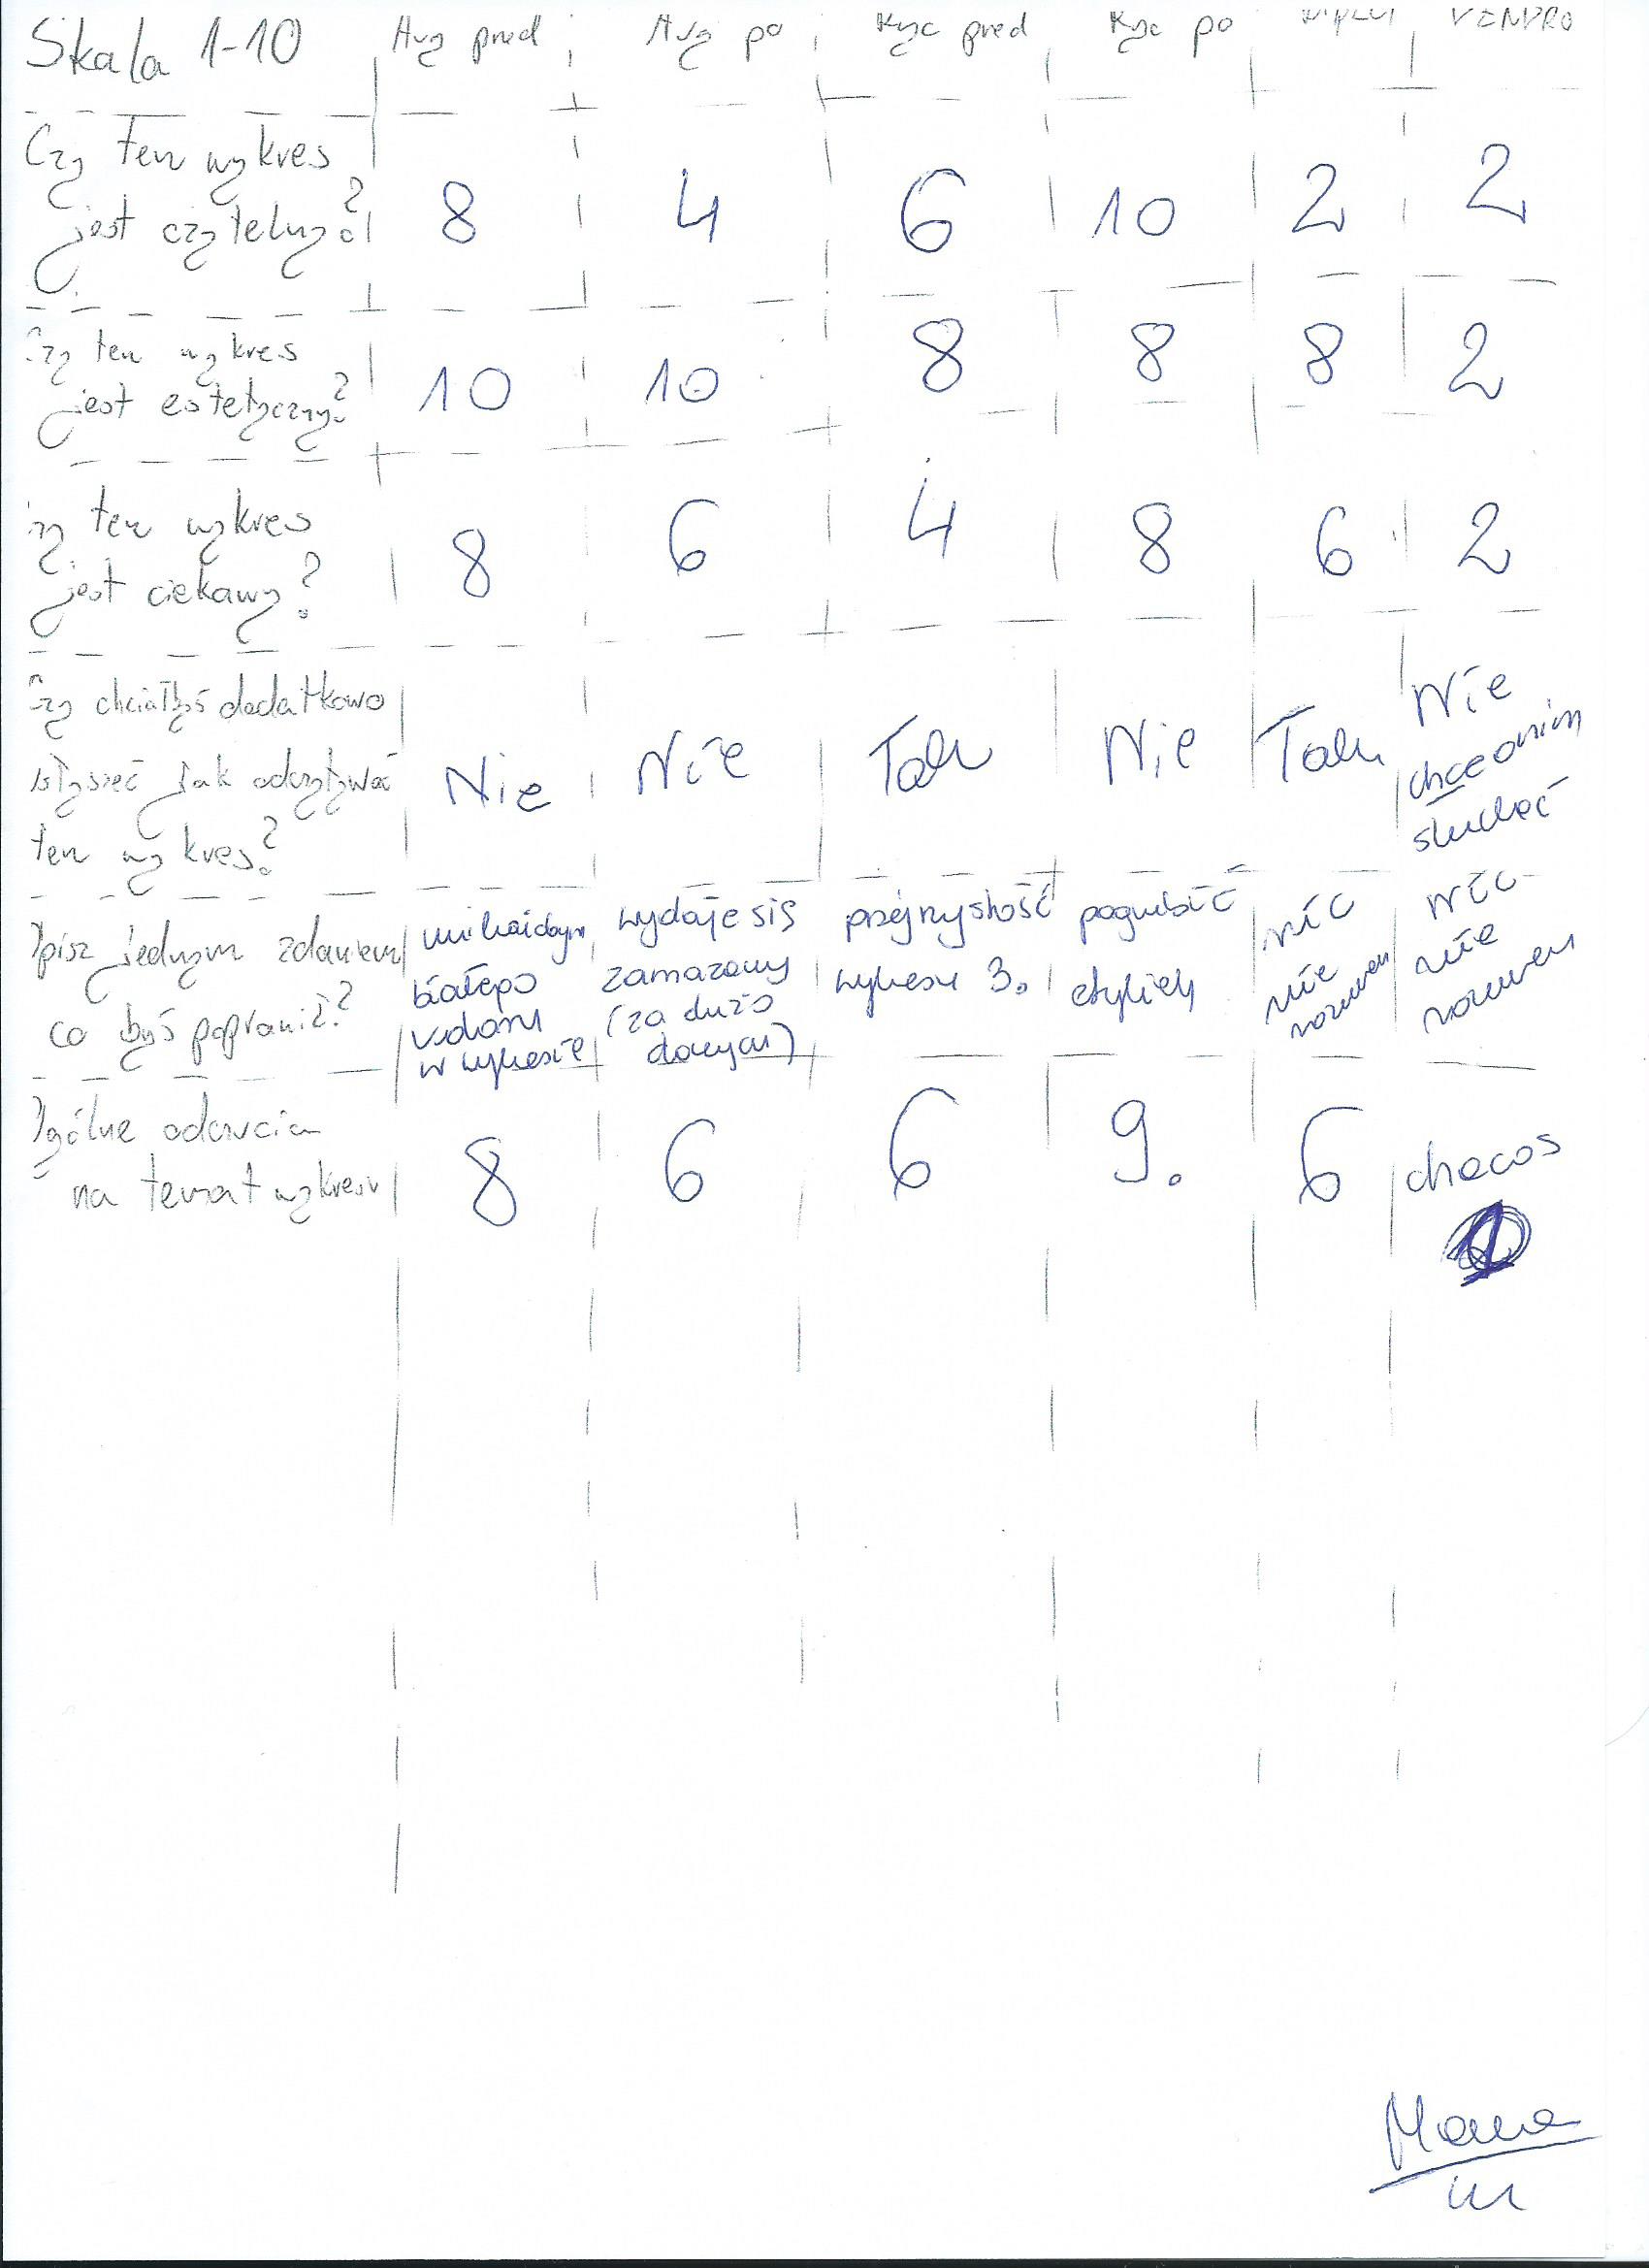 Skala 1-10 Avg pred Avg po Kyc pred Kyc po VENPRO
Czy ten wykres
jest czytelny? 8 4 6 10 2 2
Czy ten wykres
jest estetyczny? 10 10 8 8 8 2
czy ten wykres
jest ciekawy? 8 6 4 8 6 2
Czy chciałbyś dodatkowo
jak odczytywać
ten wykres?
Nie Nie Tak Nie Tak Nie
chce o nim
słuchać
Opisz jednym zdaniem
co byś poprawił?
białego
koloru
w wykresie
wydaje się
zamazany
(za dużo
danych)
przejrzystość
wykresu 3.
pogrubić
nic
nie
rozumiem
nic
nie
rozumiem
Ogólne odczucia
na temat wykresu 8 6 6 9. 6 chaos
1